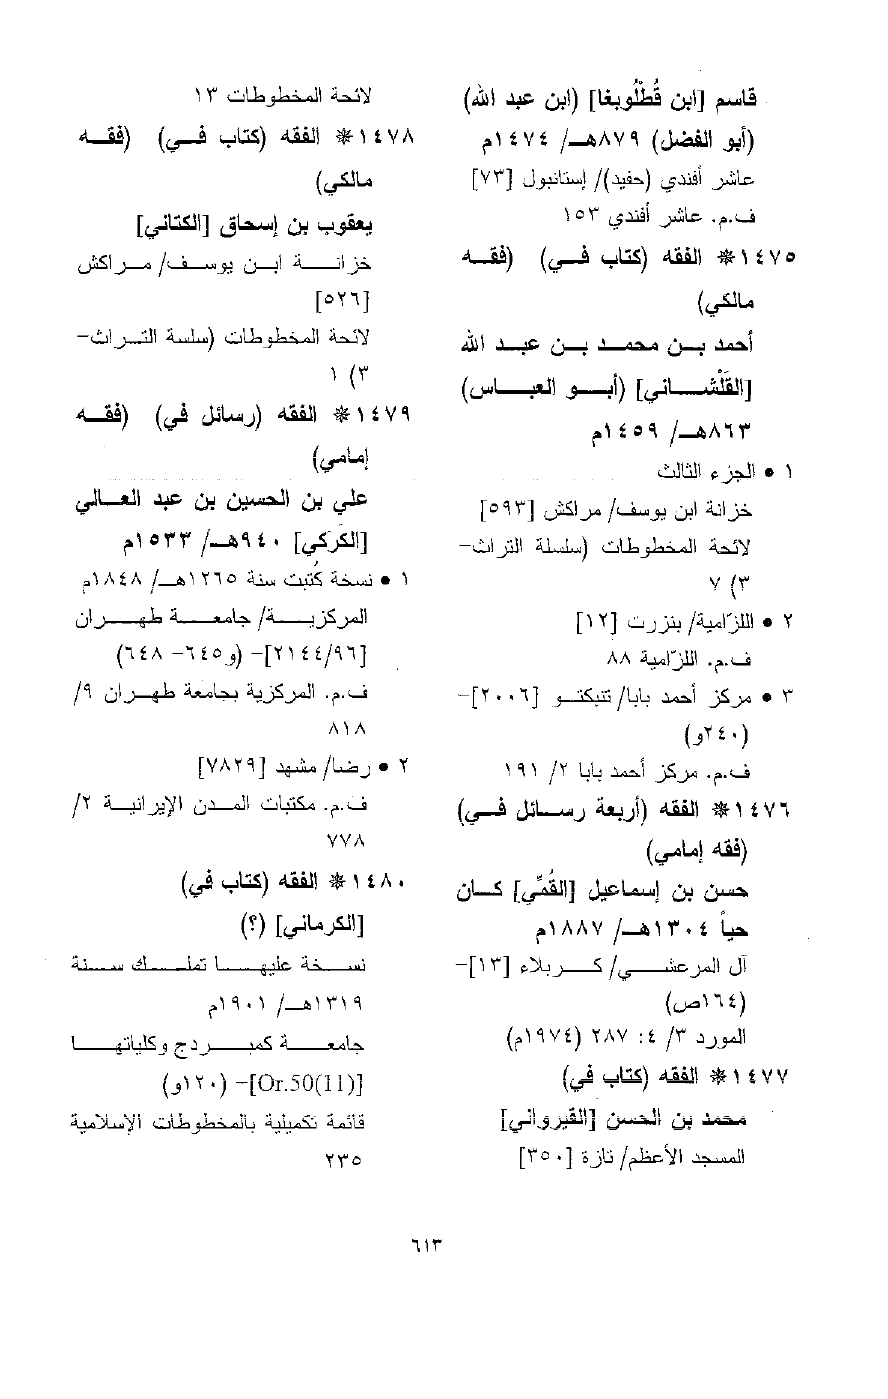 قاسم [ابن قُطْلُوبغا] (ابن عبد الله)
(أبو الفضل) ٨٧٩هـ/ ١٤٧٤م
عاشر أفندي (حفيد)/ إستانبول [٧٣]
ف.م. عاشر أفندي ١٥٣
١٤٧٥* الفقه (كتاب في) (فقه
مالكي)
أحمد بن محمد بن عبد الله
[القَلْشاني] (أبو العباس)
٨٦٣هـ/ ١٤٥٩م
١ • الجزء الثالث
خزانة ابن يوسف/ مراكش [٥٩٣]
لائحة المخطوطات (سلسلة التراث-
٣) ٧
٢ • اللزّامية/ بنزرت [١٢]
ف.م. اللزّامية ٨٨
٣ • مركز أحمد بابا/ تنبكتو [٢٠٠٦]-
(٢٤٠و)
ف.م. مركز أحمد بابا ٢/ ١٩١
١٤٧٦* الفقه (أربعة رسائل في)
(فقه إمامي)
حسن بن إسماعيل [القُمِّي] كان
حياً ١٣٠٤هـ/ ١٨٨٧م
آل المرعشي/ كربلاء [١٣]-
(١٦٤ص)
المورد ٣/ ٤: ٢٨٧ (١٩٧٤م)
١٤٧٧* الفقه (كتاب في)
محمد بن الحسن [القيرواني]
المسجد الأعظم/ تازة [٣٥٠]
لائحة المخطوطات ١٣
١٤٧٨* الفقه (كتاب في) (فقه
مالكي)
يعقوب بن إسحاق [الكتاني]
خزانة ابن يوسف/ مراكش
[٥٢٦]
لائحة المخطوطات (سلسلة التراث-
٣) ١
١٤٧٩* الفقه (رسائل في) (فقه
إمامي)
علي بن الحسين بن عبد العالي
[الكَرَكي] ٩٤٠هـ/ ١٥٣٣م
١ • نسخة كُتبت سنة ١٢٦٥هـ/ ١٨٤٨م
المركزية/ جامعة طهران
[٢١٤٤/٩٦]- (و٦٤٥- ٦٤٨)
ف.م. المركزية بجامعة طهران ٩/
٨١٨
٢ • رضا/ مشهد [٧٨٢٩]
ف.م. مكتبات المدن الإيرانية ٢/
٧٧٨
١٤٨٠* الفقه (كتاب في)
[الكرماني] (؟)
نسخة عليها تملك سنة
١٣١٩هـ/ ١٩٠١م
جامعة كمبردج وكلياتها
[Or.50(11)]- (١٢٠و)
قائمة تكميلية بالمخطوطات الإسلامية
٢٣٥
٦١٣